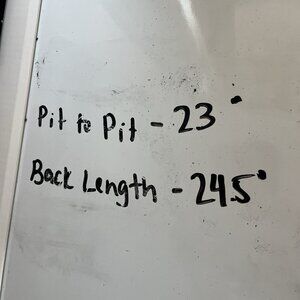 Pit to Pit - 23"
Back Length - 24.5"